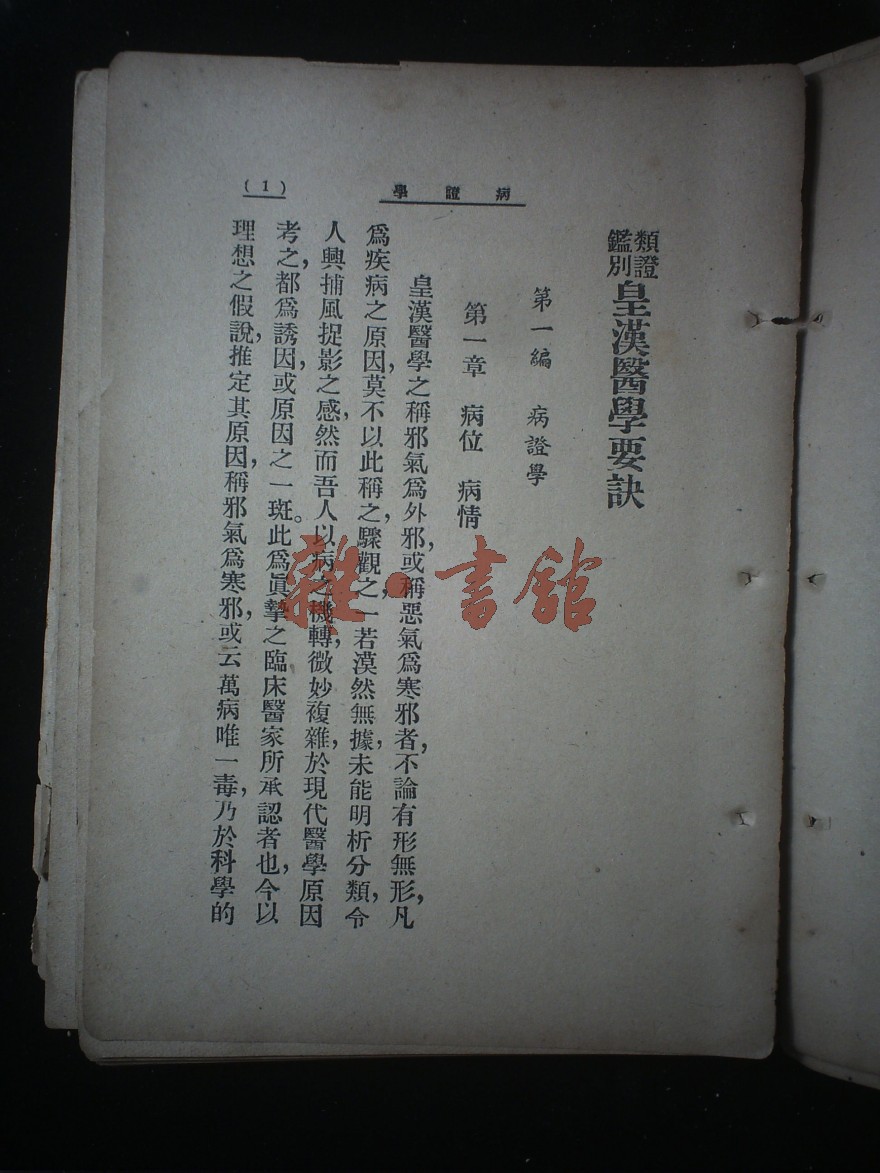 (1)
病證學
類證鑑別皇漢醫學要訣
第一編 病證學
第一章 病位 病情
皇漢醫學之稱邪氣爲外邪，或稱惡氣爲寒邪者，不論有形無形，凡
爲疾病之原因，莫不以此稱之，驟觀之，一若漠然無據，未能明析分類，令
人興捕風捉影之感，然而吾人以病之機轉，微妙複雜，於現代醫學原因
考之，都爲誘因，或原因之一斑。此爲眞摯之臨床醫家所承認者也，今以
理想之假說，推定其原因，稱邪氣爲寒邪，或云萬病唯一毒，乃於科學的
雜·書館